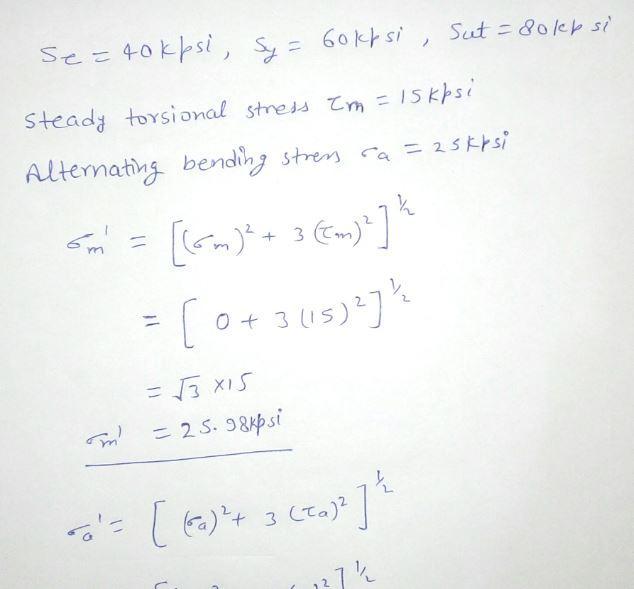 Se = 40 kpsi, Sy = 60kpsi, Sut = 80kpsi
Steady torsional stress τm = 15kpsi
Alternating bending stress σa = 25kpsi
σm' = [(σm)² + 3 (τm)²]^½
= [0 + 3 (15)²]^½
= √3 X15
σm' = 25.98kpsi
σa' = [(σa)² + 3 (τa)²]^½